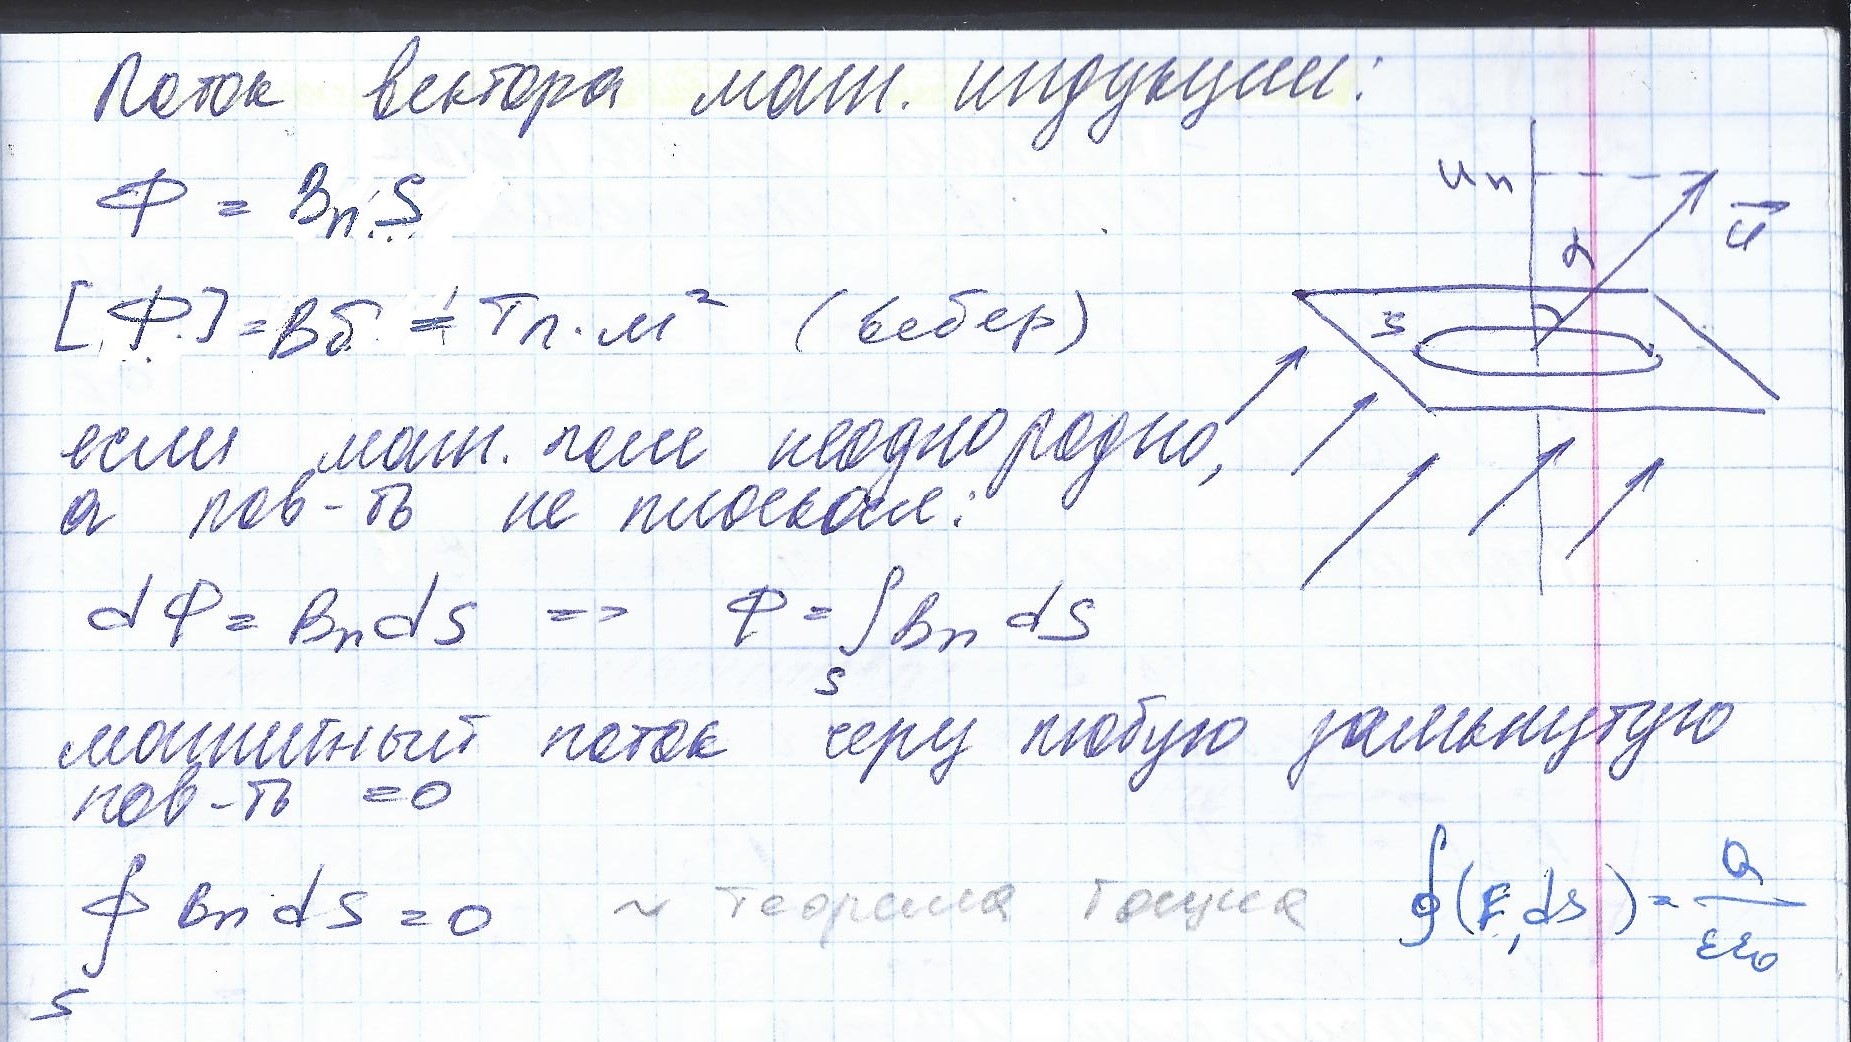 Поток вектора магн. индукции:
Ф = BnS
[Ф] = Вб = Тл·м² (вебер)
если магн. поле неоднородно,
а пов-ть не плоская:
dФ = BndS => Ф = ∫S Bn dS
магнитный поток через любую замкнутую
пов-ть =0
∮S Bn dS = 0 ~ теорема Гаусса ∮(E, dS) = Q/εε₀
un
α
u⃗
S